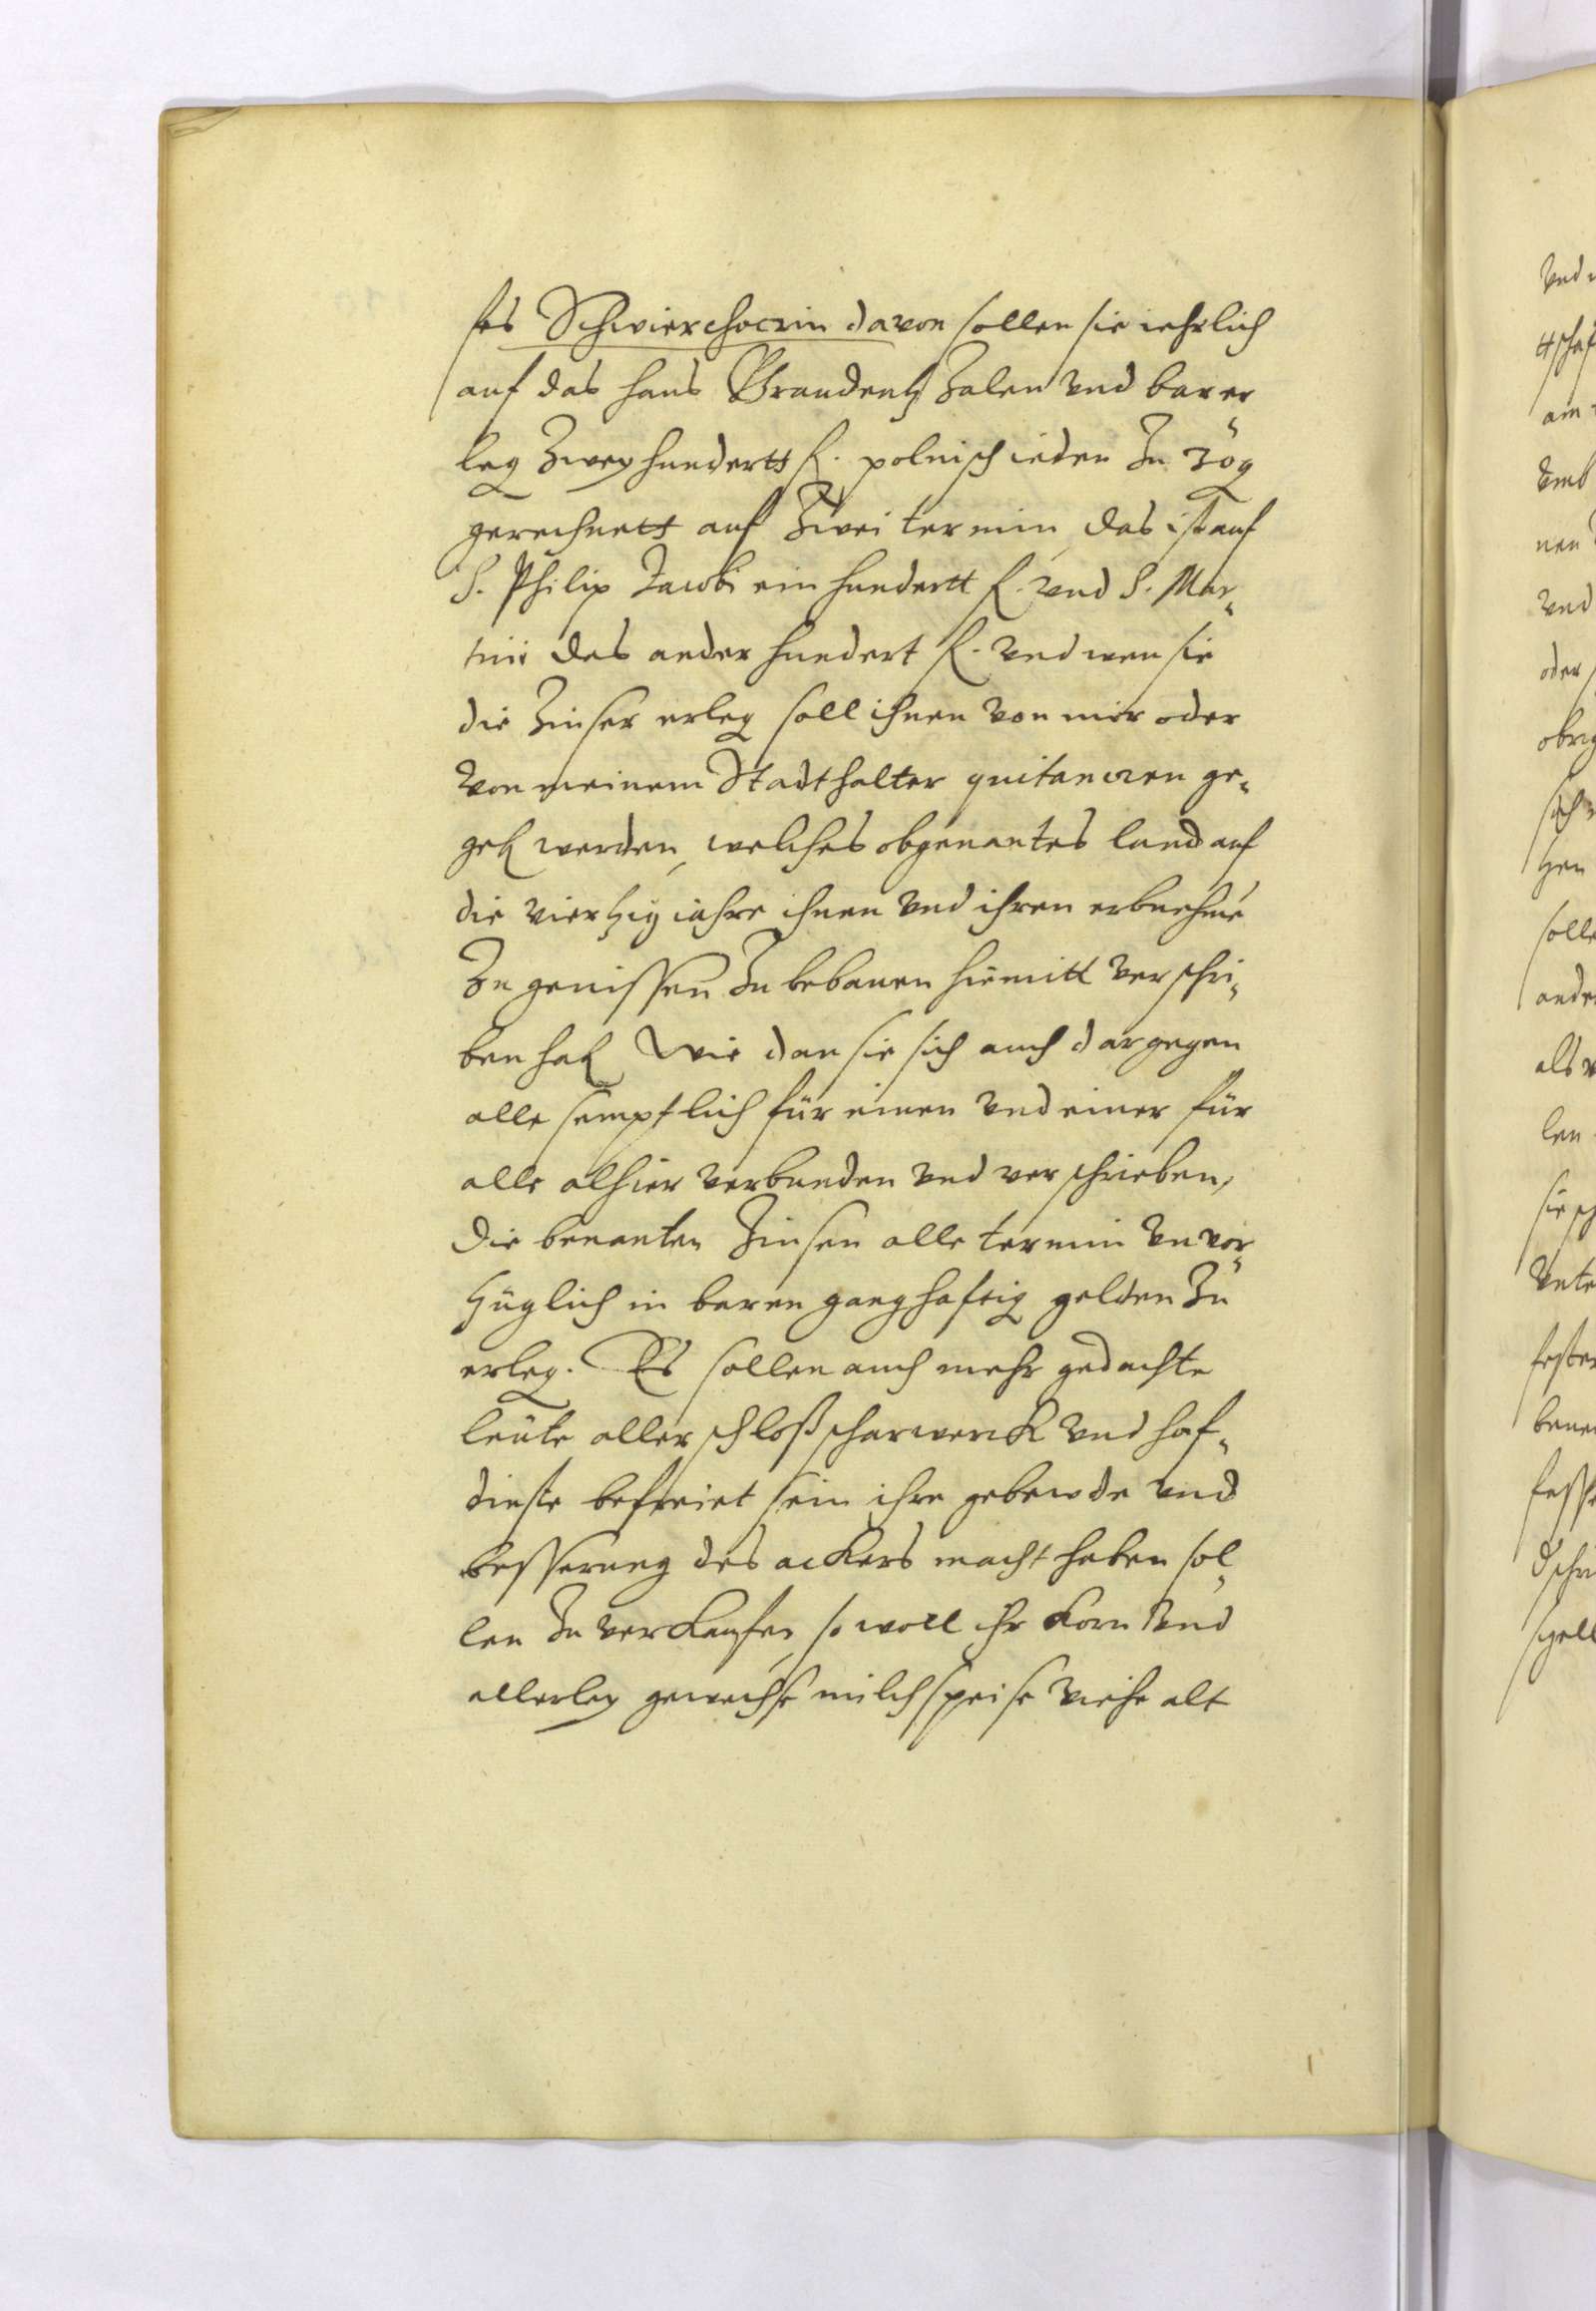 ses Schwierchoczin davon sollen sie iehrlich
auf das haus Graudentz Zalen und bar er
leg Zwey hundertt f. polnisch ieden Zu 30g
gerechnett auf Zwei termin, das ist auf
S. Philip Jacobi ein hundertt f. und S. Mar„
tini das ander hundert f. und wen sie
die Zinser erleg soll ihnen von mir oder
von meinem Stadthalter quitanczen ge„
geb werden, welches obgenantes land auf
die viertzig iahre ihnen und ihren erbnehme
Zu genissen Zu bebauen hiemitt verschri„
ben hab Wie dan sie sich auch dargegen
alle semptlich für einen und einer für
alle alhier verbunden und verschrieben,
Die benanten Zinsen alle termin unvor„
züglich in baren ganghaftig gelden Zu
erleg. Es sollen auch mehr gedachte
leute aller schloßscharwerck und hof„
dinste befreiet sein ihre gebewde und
besserung des ackers macht haben sol„
len Zu verkaufen, so woll ihr korn und
allerley gewechse milchspeise viehe alt
und
oder
als
len